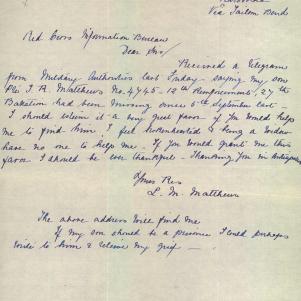 Via Tailem Bend
Red Cross Information Bureau
Dear Sir/
Received a Telegram
from Military Authorities last Friday - saying my son
Pte J. R. Matthews No. 4745 - 12th Reinforcements, 27th
Battalion had been missing since 5th September last -
I should esteem it a very great favor if you would help
me to find him. I feel brokenhearted & being a widow
have no one to help me. If you would grant me this
favor I should be ever thankful. Thanking you in anticipation
Yours Res
L. M. Matthews
The above address will find me
If my son should be a prisoner I could perhaps
write to him & relieve my grief -